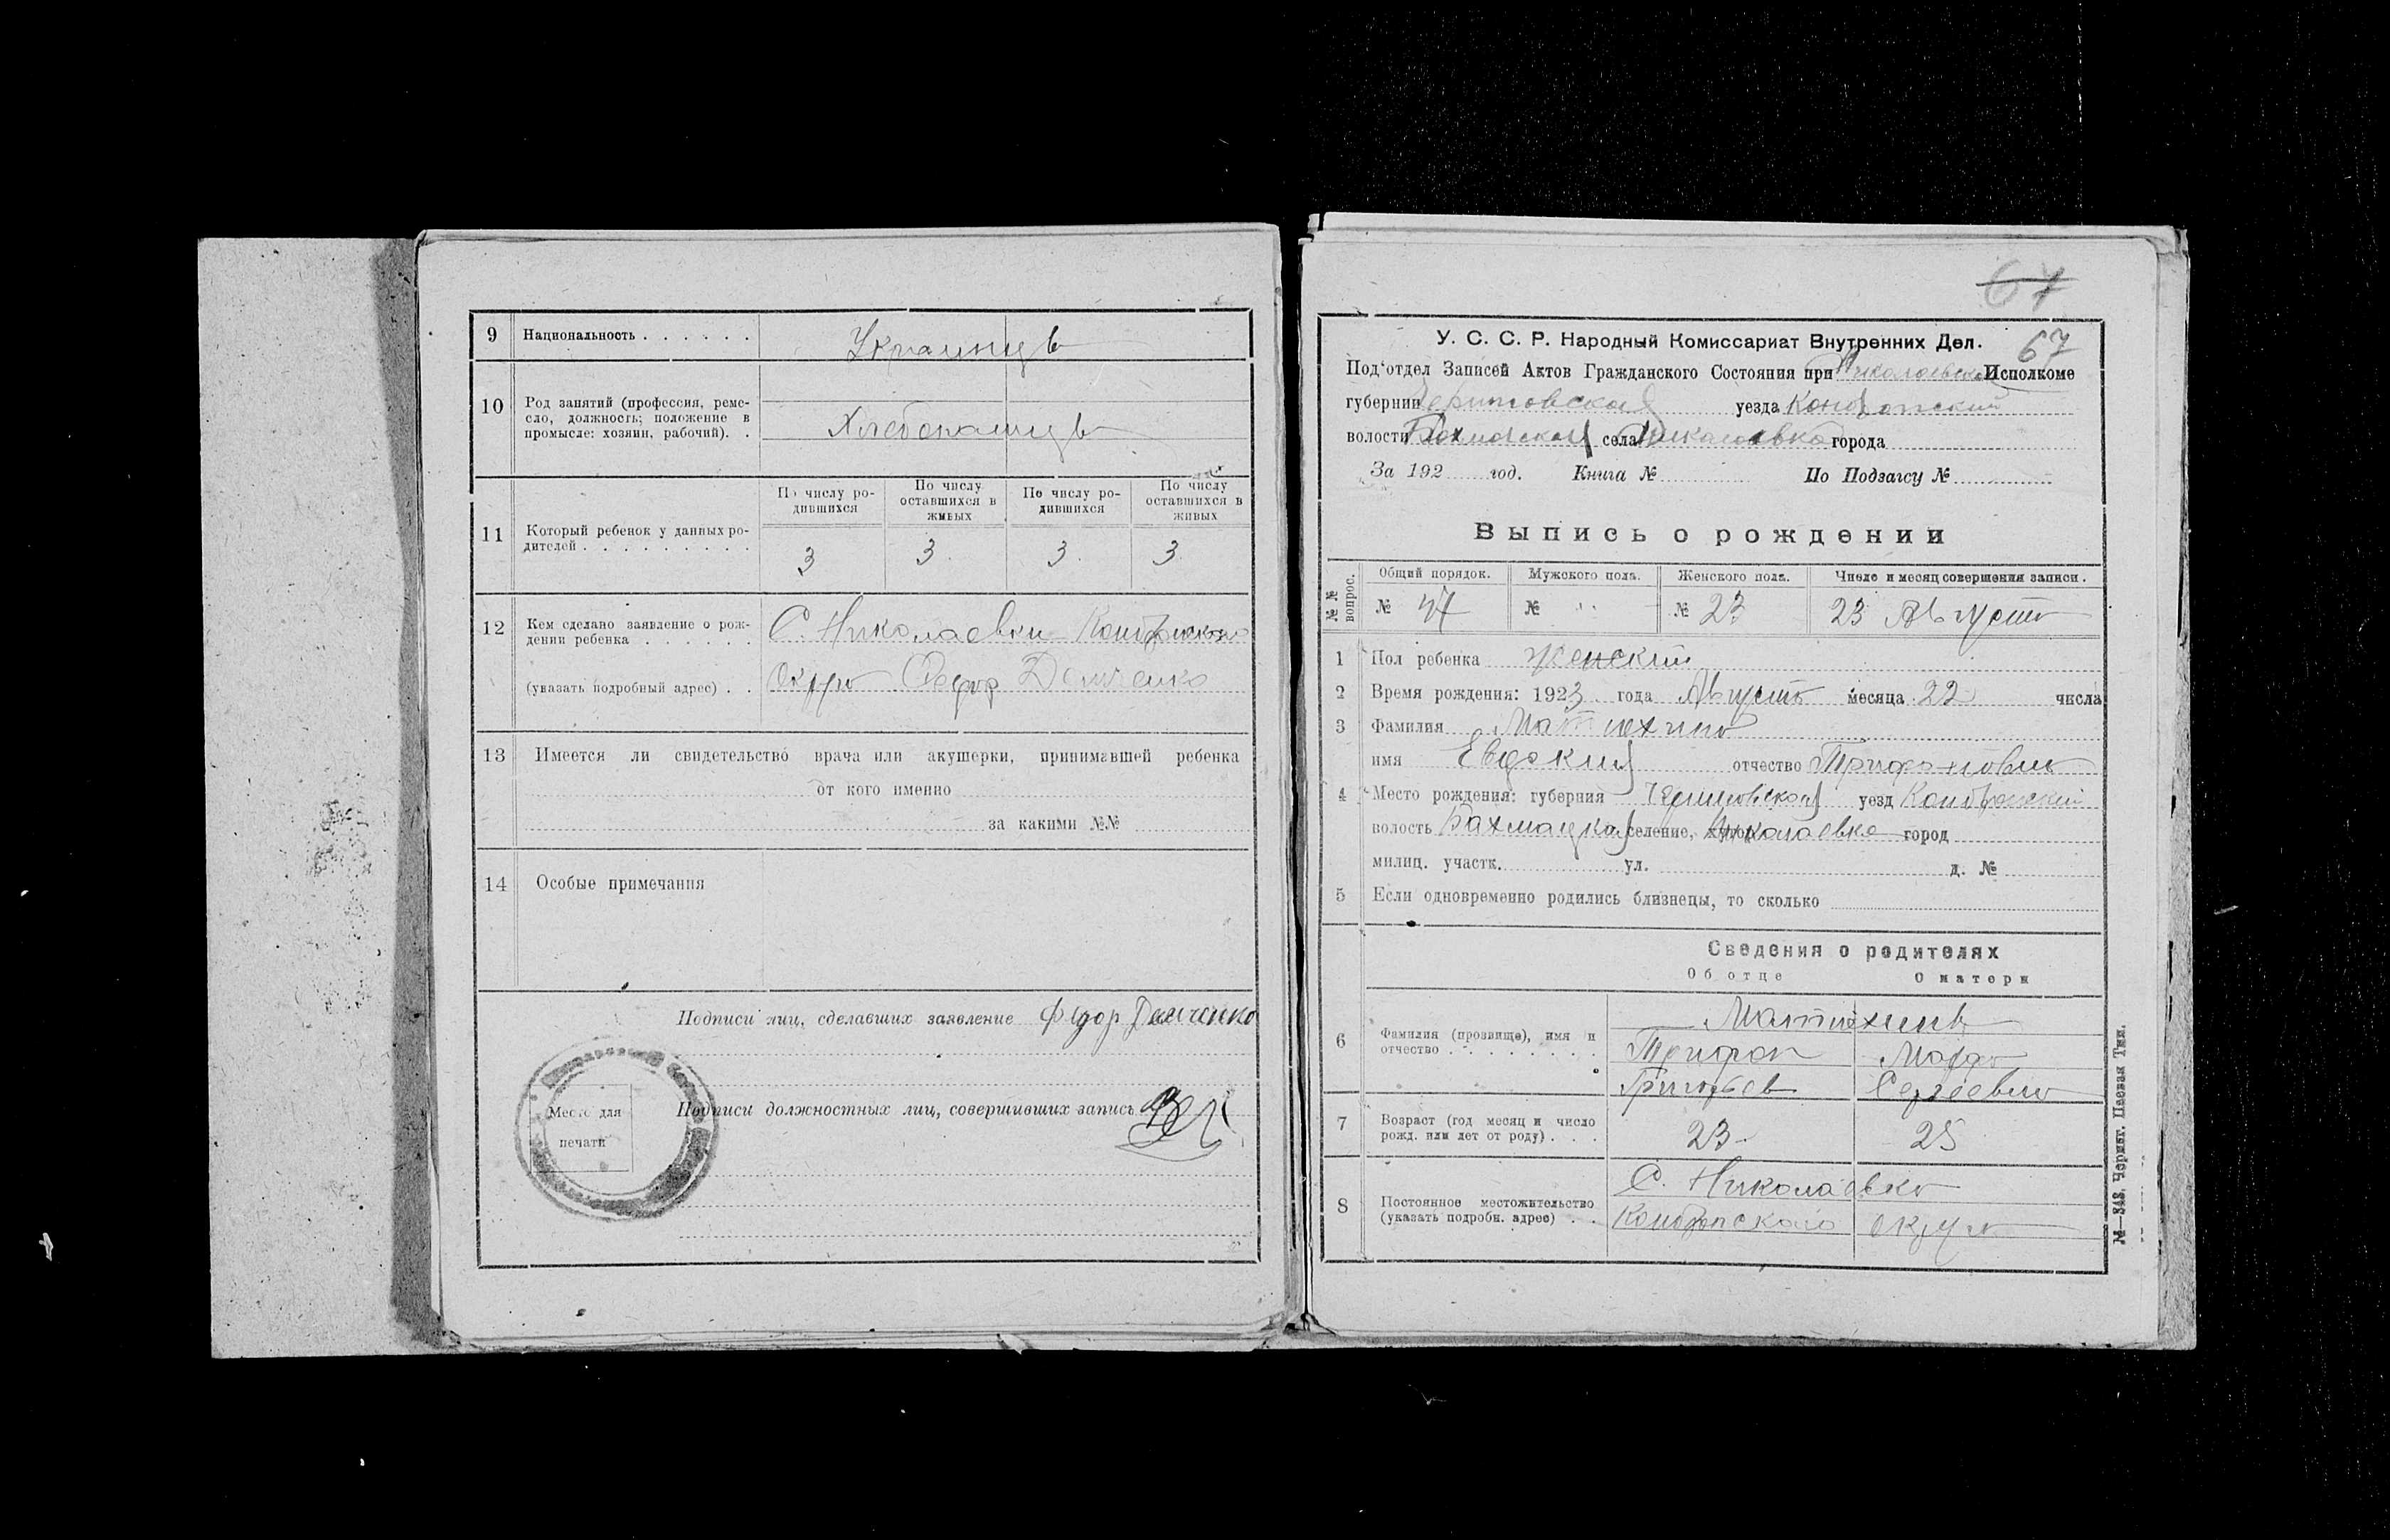 9 Национальность . . . . . . Украинцы
10 Род занятий (профессия, реме-
сло, должность; положение в
промысле: хозяин, рабочий). .
Хлебопашцы
По числу ро-
дившихся
По числу
оставшихся в
живых
По числу ро-
дившихся
По числу
оставшихся в
живых
11 Который ребенок у данных ро-
дителей . . . . . . . . .
3 3. 3. 3
12 Кем сделано заявление о рож-
дении ребенка . . . . . .
С. Николаевки Конотопского
(указать подробный адрес) . .
Округа Федор Демченко
13 Имеется ли свидетельство врача или акушерки, принимавшей ребенка
от кого именно
за какими №№
14 Особые примечания
Подписи лиц, сделавших заявление Федор Демченко
Подписи должностных лиц, совершивших запись
Место для
печати
67
У. С. С. Р. Народный Комиссариат Внутренних Дел. 67
Под'отдел Записей Актов Гражданского Состояния при Николаевском Исполкоме
губернии Черниговская уезда Конотопский
волости Бахмацкая села Николаевка города
За 192 год. Книга № По Подзагсу №
Выпись о рождении
№№ вопрос.
Общий порядок. Мужского пола. Женского пола. Число и месяц совершения записи.
№ 47 № № 23 23 Август
1 Пол ребенка женский
2 Время рождения: 1923 года Август месяца 22 числа
3 Фамилия Матюхина
имя Евдокия отчество Трифоновна
4 Место рождения: губерния Черниговская уезд Конотопский
волость Бахмацкая селение, Николаевка город
милиц. участк. ул. д. №
5 Если одновременно родились близнецы, то сколько
Сведения о родителях
Об отце О матери
6 Фамилия (прозвище), имя и
отчество . . . . . . . .
Матюхины
Трифон
Григорьев Сергеевна
7 Возраст (год месяц и число
рожд. или лет от роду) . . .
23 25
8 Постоянное местожительство
(указать подробн. адрес) . .
С. Николаевка
Конотопского округа
М—348. Черниг. Паевая Тип.